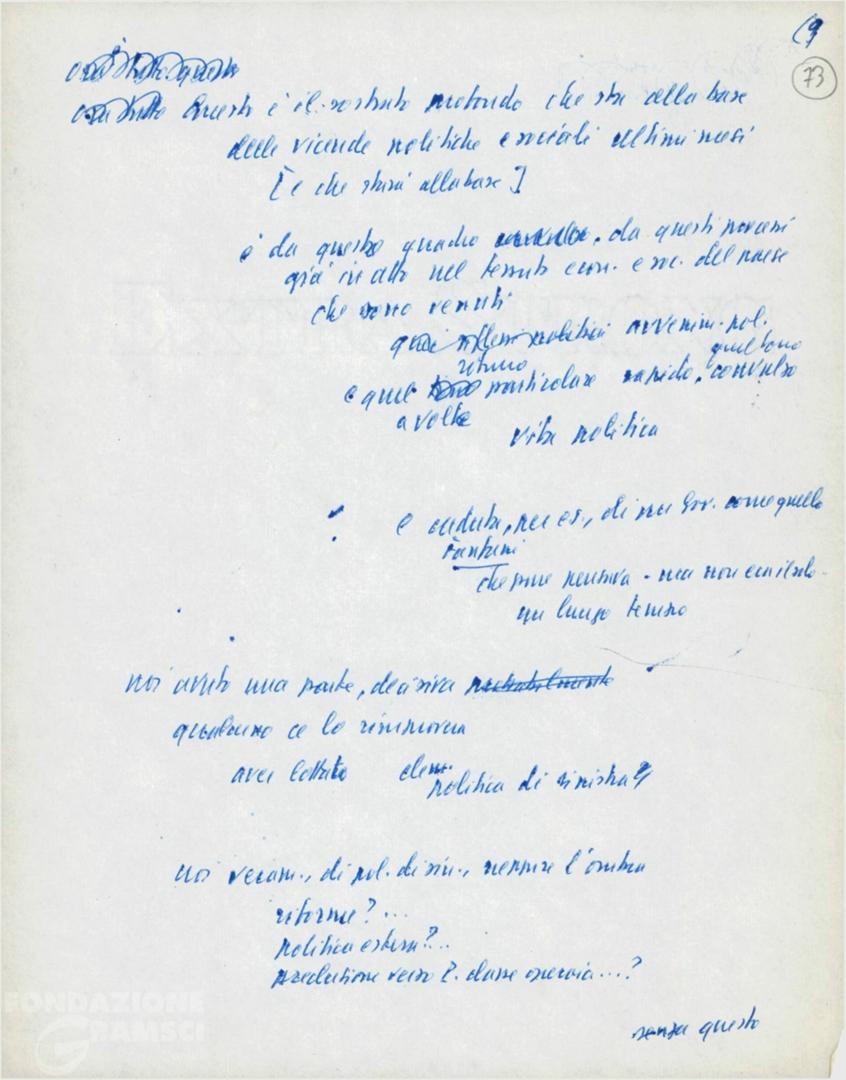 (9
73
ora tutto questo
ora tutto Questo è il sostrato profondo che sta alla base
delle vicende politiche e sociali ultimi mesi
[e che starà alla base]
è da questo quadro, da questi processi
già in atto nel tessuto econ. e soc. del paese
che sono venuti
politici avvenim. pol.
ritmo quel tono
e quel particolare rapido, convulso
a volte
vita politica
e caduta, per es., di un Gov. come quello
Fanfani
che pure pensava - ma non era il solo -
un lungo tempo
noi avuto una parte, decisiva probabilmente
qualcuno ce lo rimprovera
aver lottato elem. politica di sinistra?
noi vediam., di pol. di sin., neppure l'ombra
riforme? ...
politica estera? ..
posizione verso P. classe operaia ...?
senza questo
FONDAZIONE
GRAMSCI